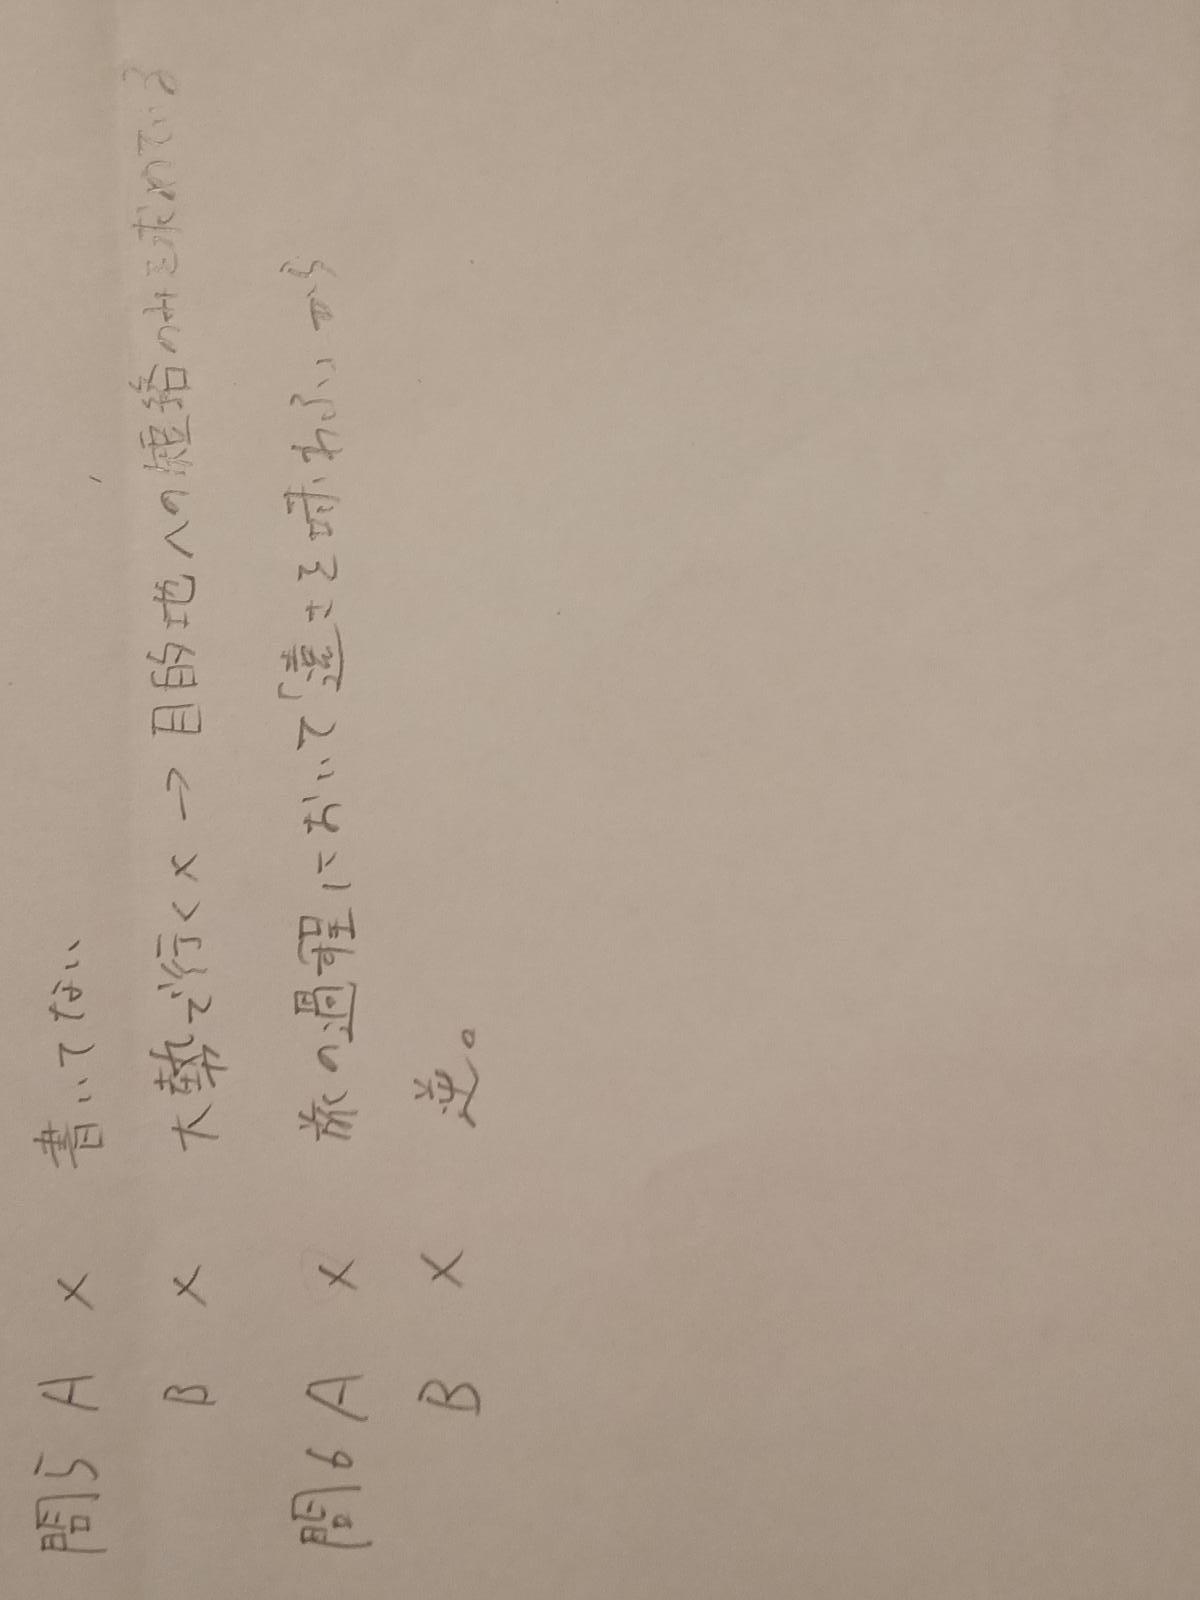 問5 A × 書いてない
B × 大勢で行く×→目的地への短絡のみを求めている
問6 A × 旅の過程において「遠さを味わふいから
B × 逆。